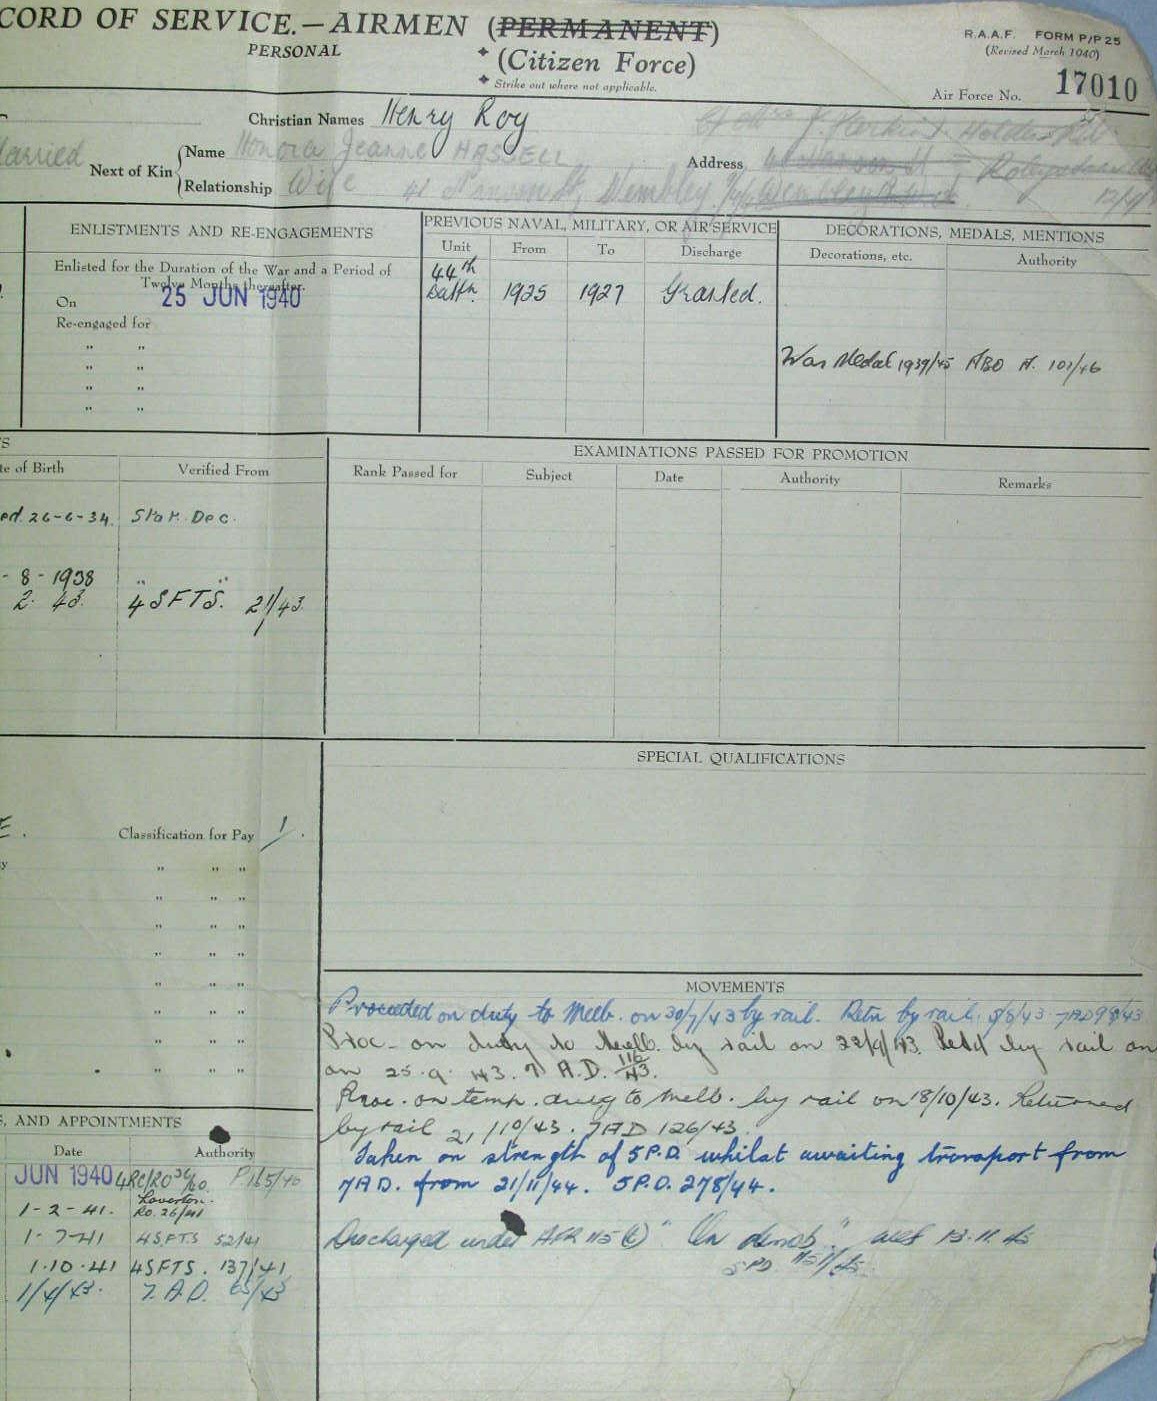 CORD OF SERVICE.—AIRMEN (PERMANENT)
PERSONAL
(Citizen Force)
Strike out where not applicable.
R.A.A.F. FORM P/P 25
(Revised March 1940)
Air Force No. 17010
Christian Names Henry Roy
Married
Next of Kin
Name Honora Jeanne HASSELL
Relationship Wife
Address
41 St, Wembley
ENLISTMENTS AND RE-ENGAGEMENTS
Enlisted for the Duration of the War and a Period of
Twelve Months thereafter.
On 25 JUN 1940
Re-engaged for
" "
" "
" "
" "
PREVIOUS NAVAL, MILITARY, OR AIR SERVICE
Unit From To Discharge
44th
Battn. 1925 1927 Granted.
DECORATIONS, MEDALS, MENTIONS
Decorations, etc. Authority
War Medal 1939/45 ABO A. 101/46
S
te of Birth Verified From
ed. 26-6-34. Stat. Dec.
- 8 - 1938 " "
2. 43. 4 SFTS. 21/43.
EXAMINATIONS PASSED FOR PROMOTION
Rank Passed for Subject Date Authority Remarks
SPECIAL QUALIFICATIONS
E.
Classification for Pay 1.
y
" " "
" " "
" " "
" " "
" " "
" " "
" " "
" " "
MOVEMENTS
Proceeded on duty to Melb. on 30/7/43 by rail. Retn by rail 8/8/43 7AD
Proc. on duty to Melb. by rail on 22/9/43. Retd by rail on
on 25.9.43. 7 A.D. 116/43.
Proc. on temp. duty to Melb. by rail on 18/10/43. Returned
by rail 21/10/43. 7AD 126/43.
Taken on strength of 5P.D. whilst awaiting transport from
7AD. from 21/11/44. 5P.D. 278/44.
Discharged under AFR 115 "On demob." 13.11.45
5PD
S, AND APPOINTMENTS
Date Authority
JUN 1940 4RC/RO 36/40
Laverton.
1-2-41. RO. 26/41
1-7-41 4SFTS 52/41
1.10.41 4SFTS. 137/41
1/4/43. 7.A.D. 65/43